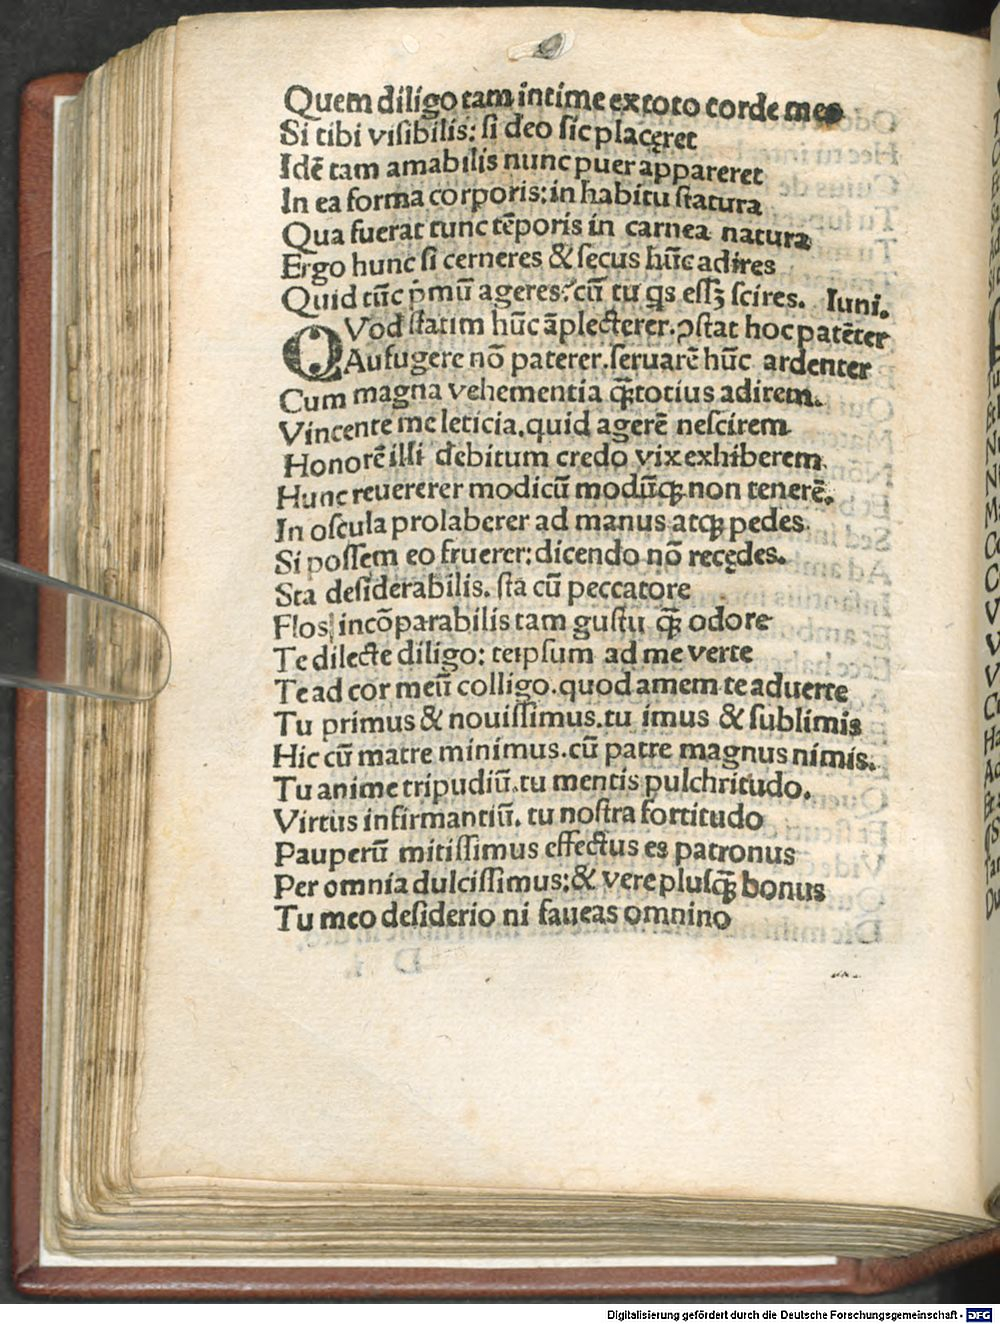 Quem diligo tam intime ex toto corde meo
Si tibi viſibilis: ſi deo ſic placęret
Idē tam amabilis nunc puer appareret
In ea forma corporis: in habitu ſtatura
Qua fuerat tunc tēporis in carnea natura
Ergo hunc ſi cerneres & ſecus hūc adires
Quid tūc p̄mū ageres: cū tu q̄s eſſꝫ ſcires. Iuni.
QVod ſtatim hūc āplecterer. ꝯſtat hoc patēter
Aufugere nō paterer. ſeruarē hūc ardenter
Cum magna vehementia q̄ꝫ totius adirem.
Vincente me leticia. quid agerē neſcirem
Honorē illi debitum credo vix exhiberem
Hunc reuererer modicū modūqꝫ non tenerē.
In oſcula prolaberer ad manus atqꝫ pedes.
Si poſſem eo fruerer: dicendo nō recędes.
Sta deſiderabilis. ſta cū peccatore
Flos incōparabilis tam guſtu q̄ꝫ odore
Te dilecte diligo: teipſum ad me verte
Te ad cor meū colligo. quod amem te aduerte
Tu primus & nouiſſimus. tu imus & ſublimis
Hic cū matre minimus. cū patre magnus nimis.
Tu anime tripudiū. tu mentis pulchritudo.
Virtus infirmantiū. tu noſtra fortitudo
Pauperū mitiſſimus effectus es patronus
Per omnia dulciſſimus: & vere pluſq̄ꝫ bonus
Tu meo deſiderio ni faueas omnino
Digitalisierung gefördert durch die Deutsche Forschungsgemeinschaft - DFG